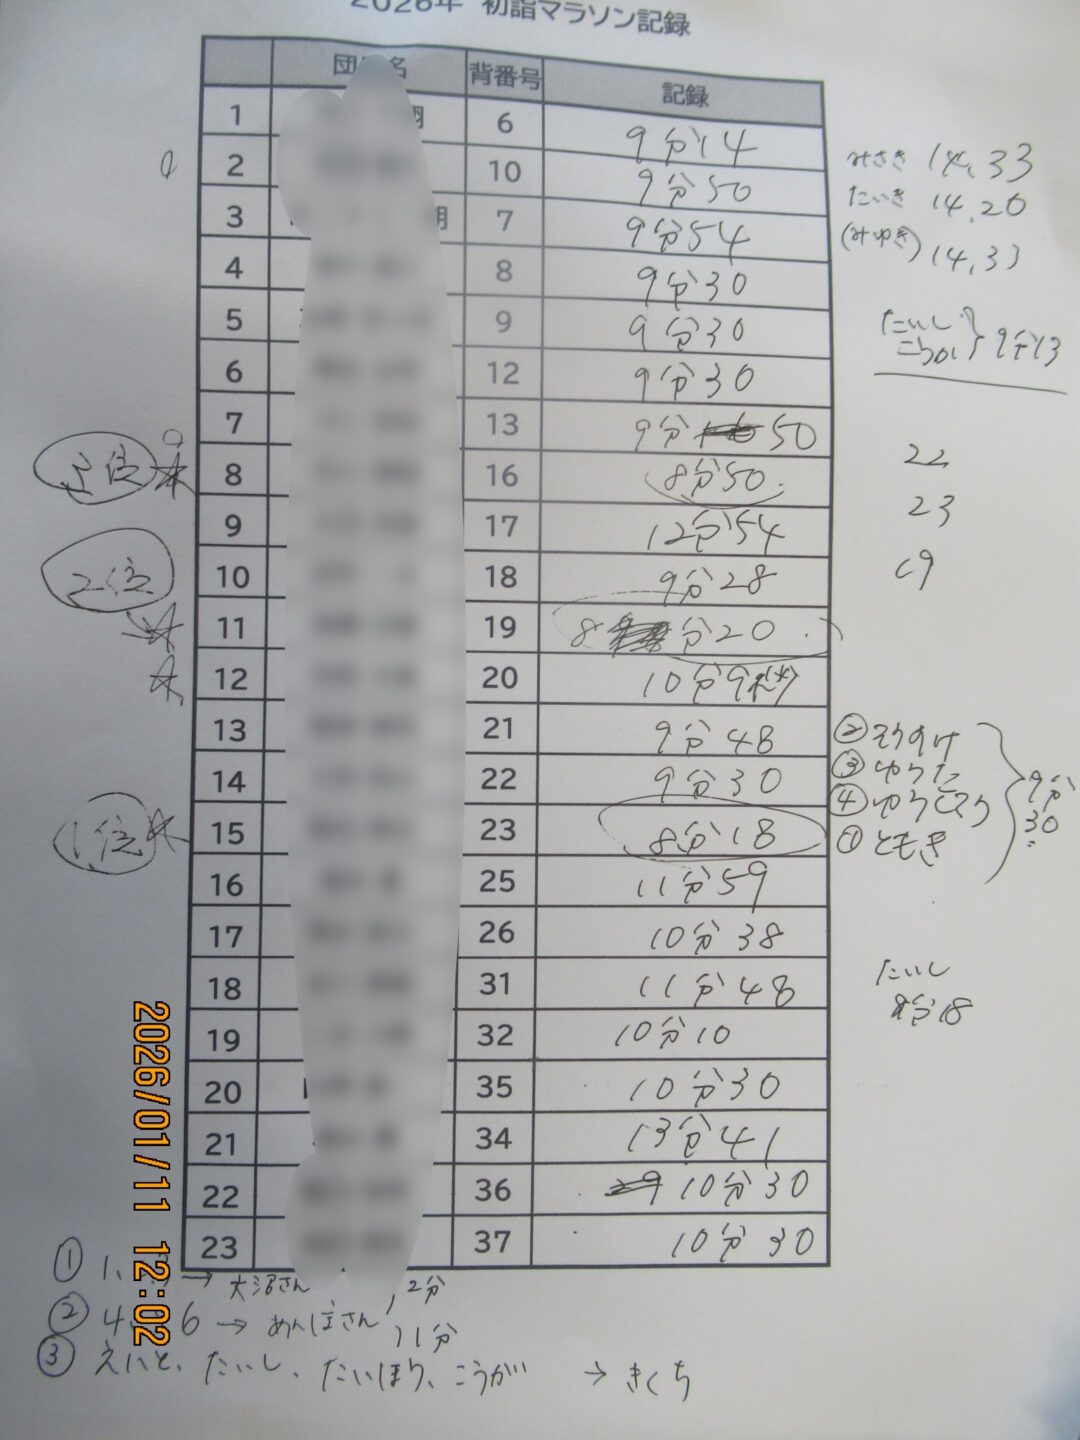 2026年 初詣マラソン記録
団 名 背番号 記録
1 翔 6 9分14
2 10 9分50
3 翔 7 9分54
4 8 9分30
5 9 9分30
6 12 9分30
7 13 9分 50
3位 8 16 8分50.
9 17 12分54
2位 10 18 9分28
11 19 8 分20
12 20 10分9秒
13 21 9分48
14 22 9分30
1位 15 23 8分18
16 25 11分59
17 26 10分38
18 31 11分48
19 32 10分10
20 35 10分30
21 34 13分41
22 36 10分30
23 37 10分30
みさき 14.33
たいき 14.20
(みゆき) 14.33
たいし 9分13
22
23
19
② そうすけ
③ ゆうた
④
① ともき
9分
30
たいし
8分18
① 1、 → 大沼さん 12分
② 4、 6 → めんぼさん 11分
③ えいと、たいし、たいほり、こうが → きくち
2026/01/11 12:02